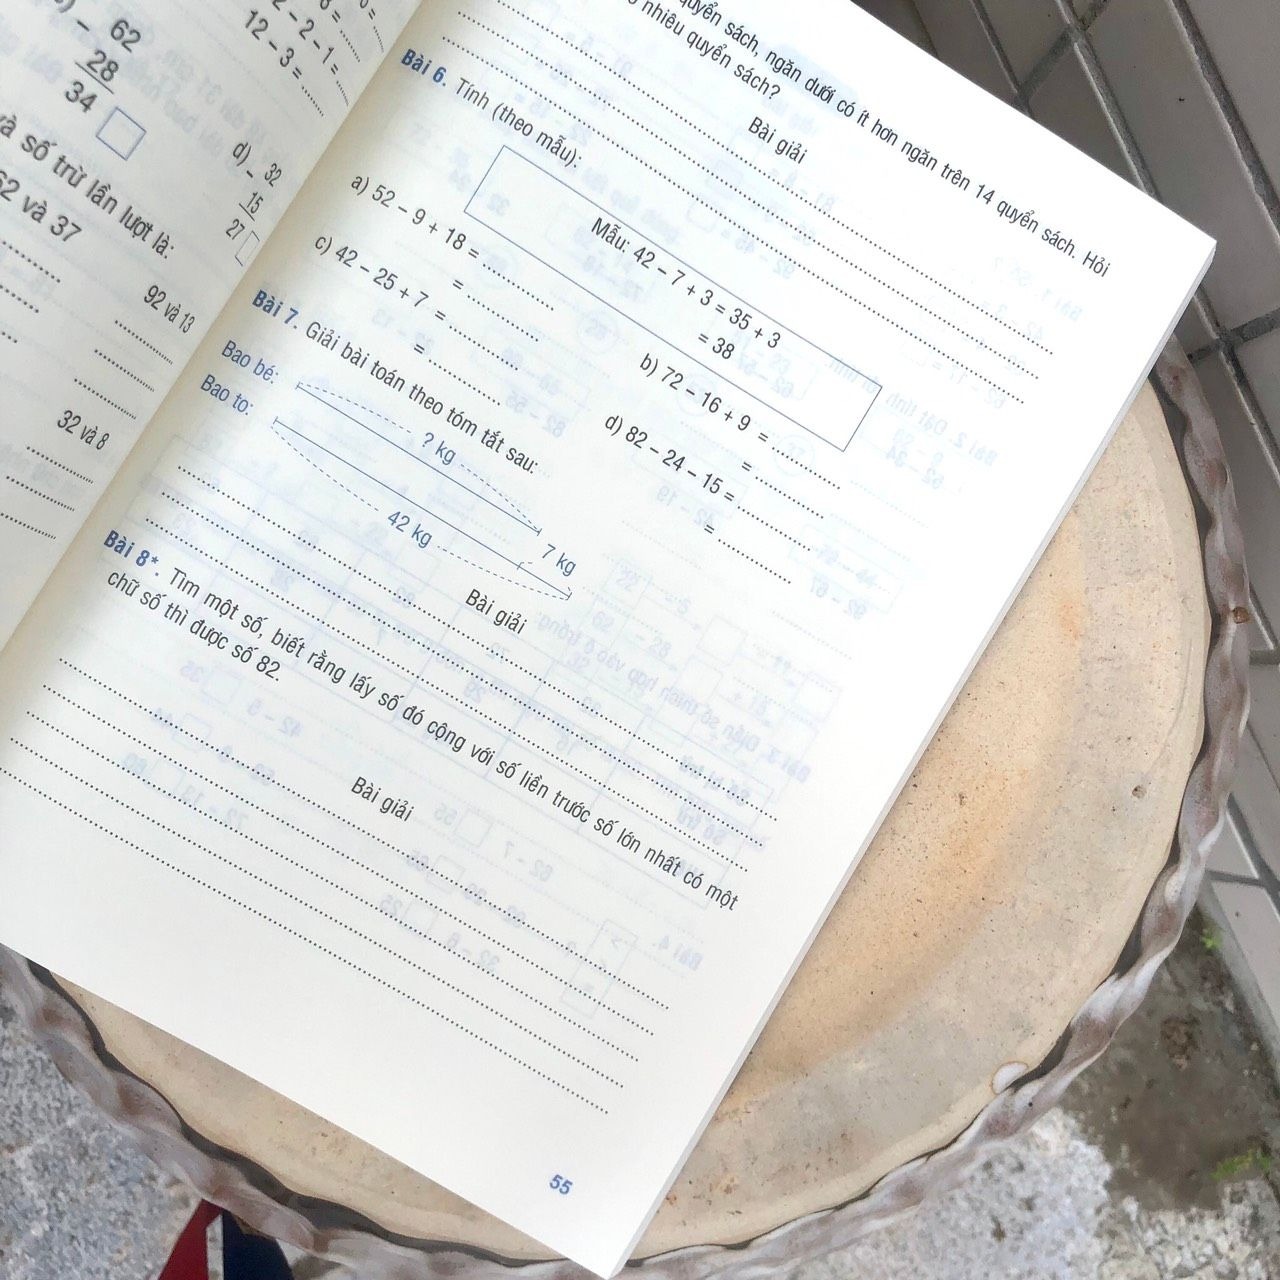 62
28
34
12 - 3 =
và số trừ lần lượt là:
62 và 37
d) - 32
15
27
92 và 13
32 và 8
quyển sách, ngăn dưới có ít hơn ngăn trên 14 quyển sách. Hỏi
nhiêu quyển sách?
Bài giải
Bài 6. Tính (theo mẫu):
Mẫu: 42 – 7 + 3 = 35 + 3
= 38
a) 52 – 9 + 18 = ............
= ............
b) 72 – 16 + 9 = ............
= ............
c) 42 – 25 + 7 = ............
= ............
d) 82 – 24 – 15 = ............
= ............
Bài 7. Giải bài toán theo tóm tắt sau:
Bao bé:
? kg
7 kg
Bao to:
42 kg
Bài giải
Bài 8*. Tìm một số, biết rằng lấy số đó cộng với số liền trước số lớn nhất có một
chữ số thì được số 82.
Bài giải
55